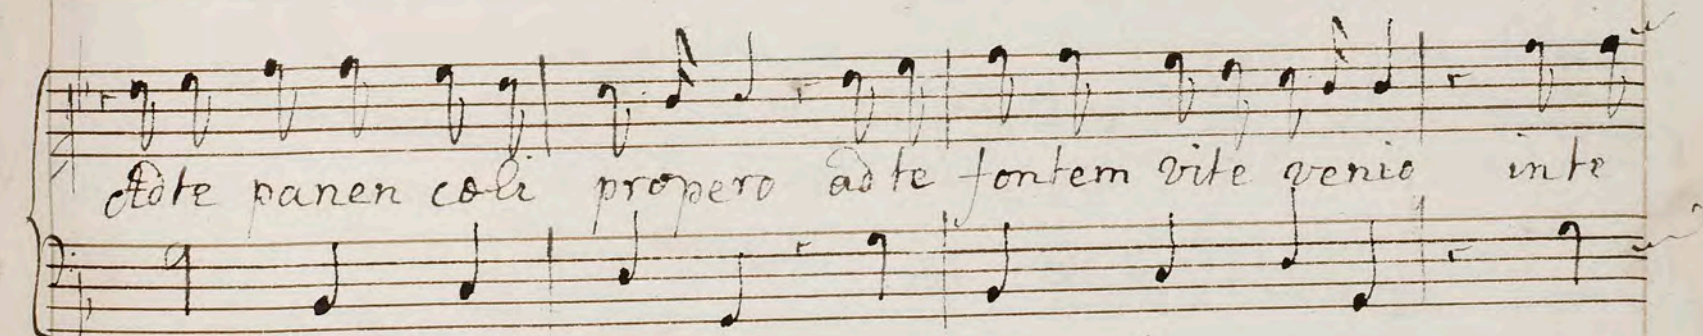 Adte panen cœli propero ad te fontem vite venio inte